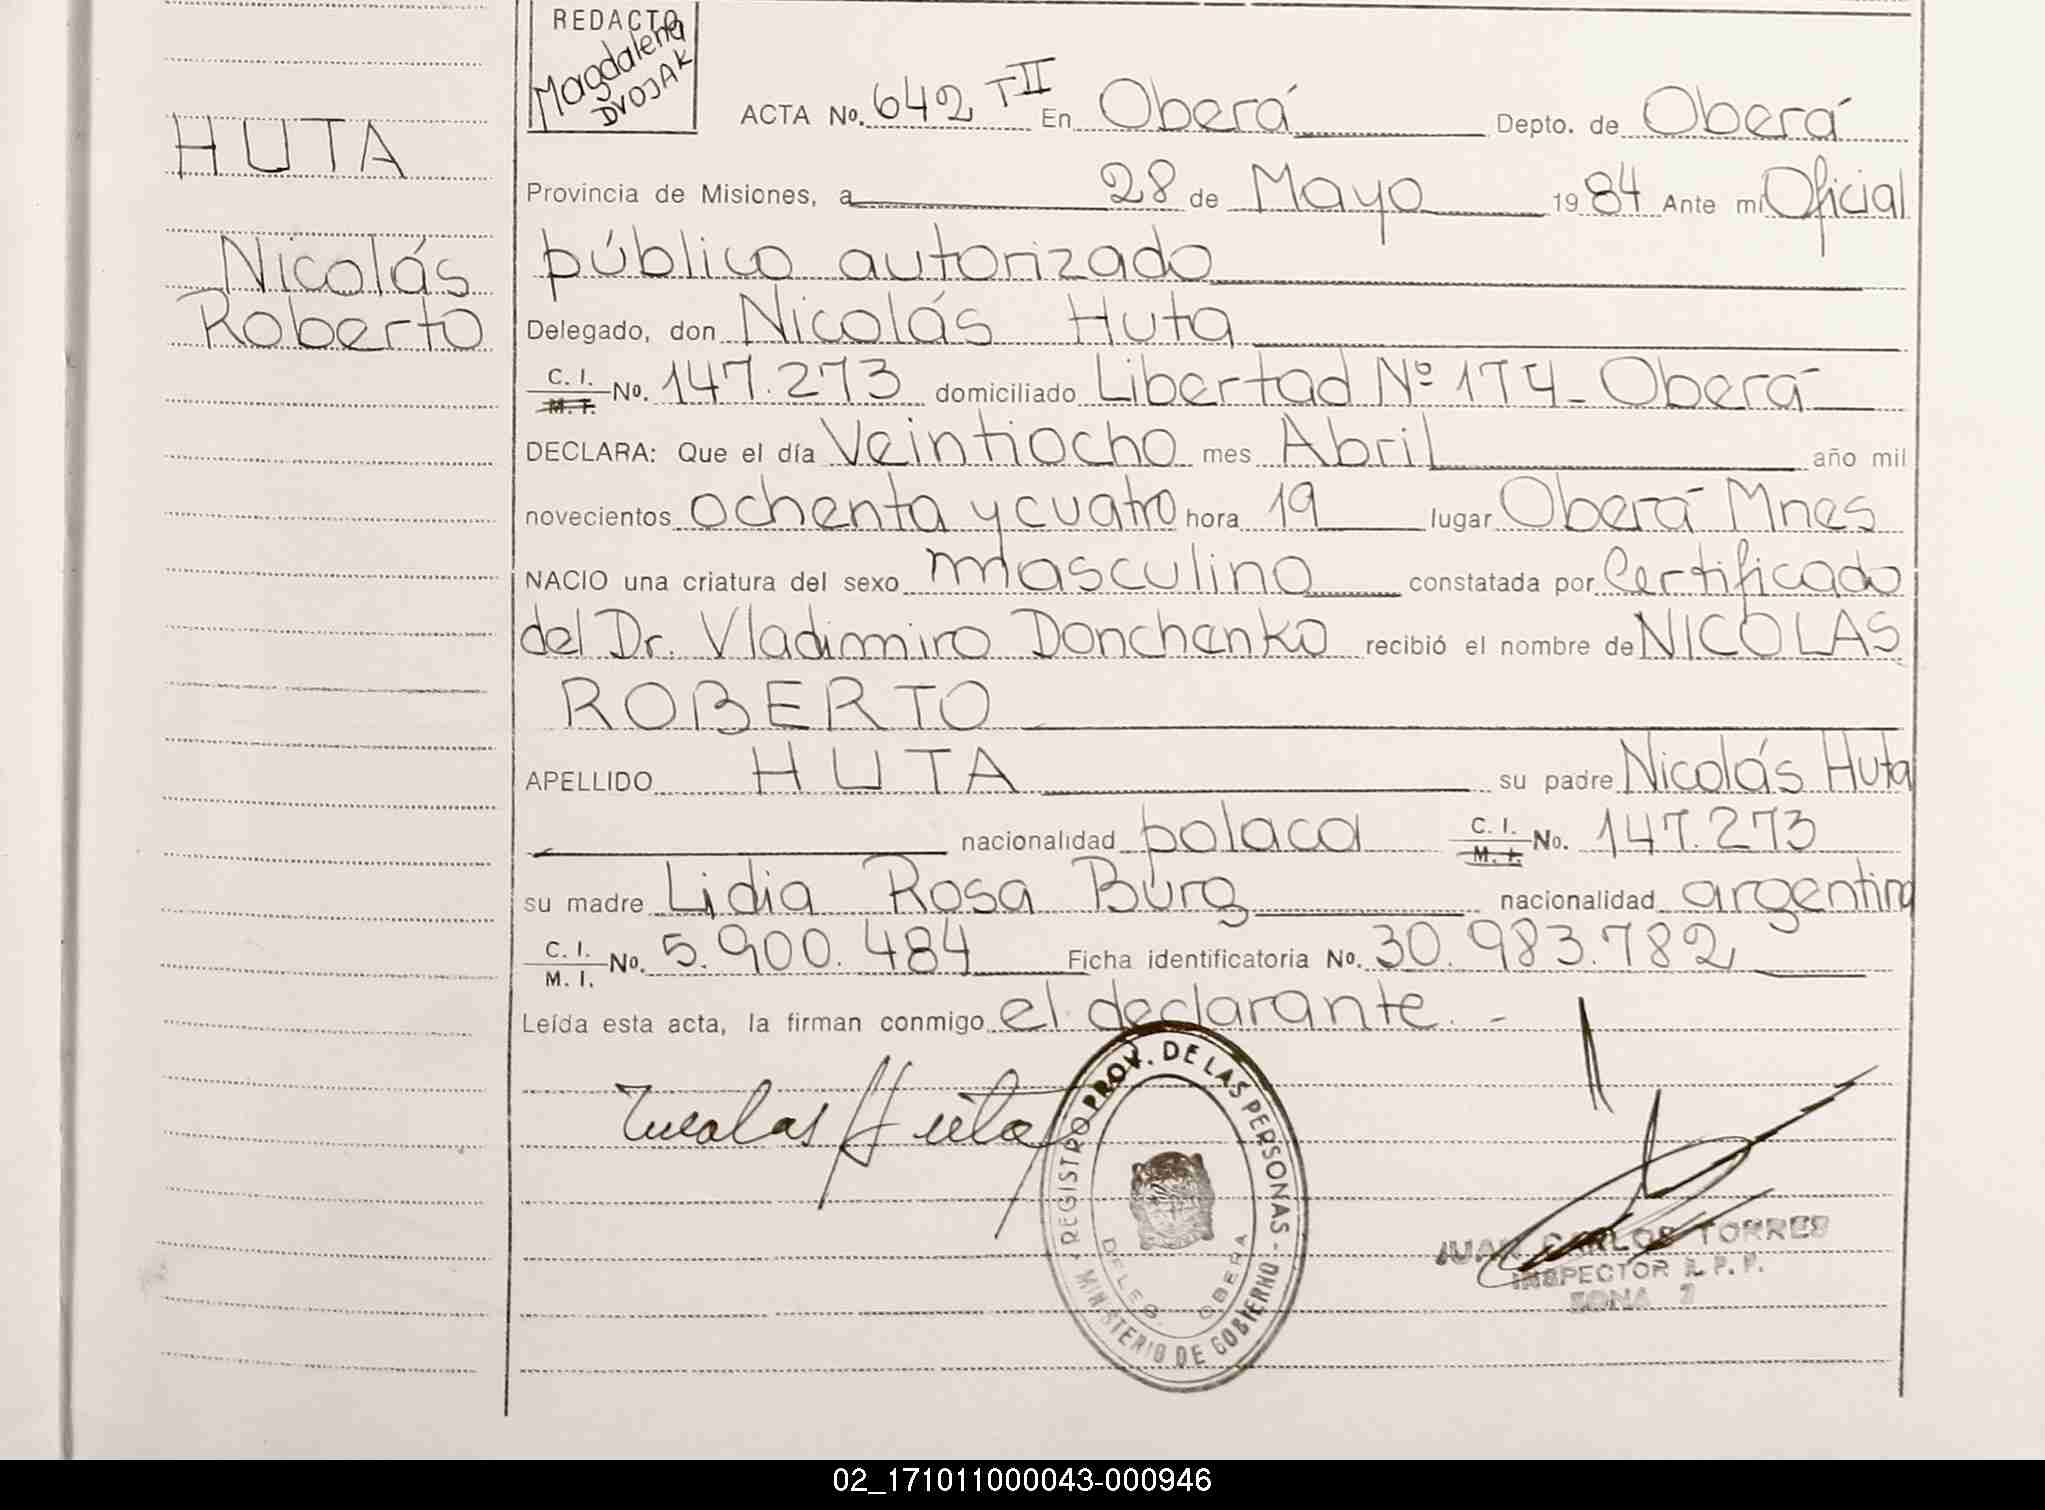 REDACTO
Magdalena
DVOJAK
ACTA No. 642 TII En Oberá Depto. de Oberá
HUTA
Provincia de Misiones, a 28 de Mayo 1984 Ante mi Oficial
Nicolás
público autorizado
Roberto
Delegado, don Nicolás Huta
C. I.
M. I.
No. 147.273 domiciliado Libertad Nº 174_ Oberá
DECLARA: Que el día Veintiocho mes Abril año mil
novecientos ochenta y cuatro hora 19 lugar Oberá Mnes
NACIO una criatura del sexo masculino constatada por Certificado
del Dr. Vladimiro Donchenko recibió el nombre de NICOLAS
ROBERTO
APELLIDO HUTA su padre Nicolás Huta
nacionalidad polaca C. I.
M. I.
No. 147.273
su madre Lidia Rosa Burg nacionalidad argentina
C. I.
M. I.
No. 5.900.484 Ficha identificatoria No. 30.983.782
Leída esta acta, la firman conmigo el declarante. -
Nicolas Huta
REGISTRO PROV. DE LAS PERSONAS - MINISTERIO DE GOBIERNO -
DELEG. OBERA
JUAN CARLOS TORRES
INSPECTOR R. P. P.
ZONA 7
02_171011000043-000946